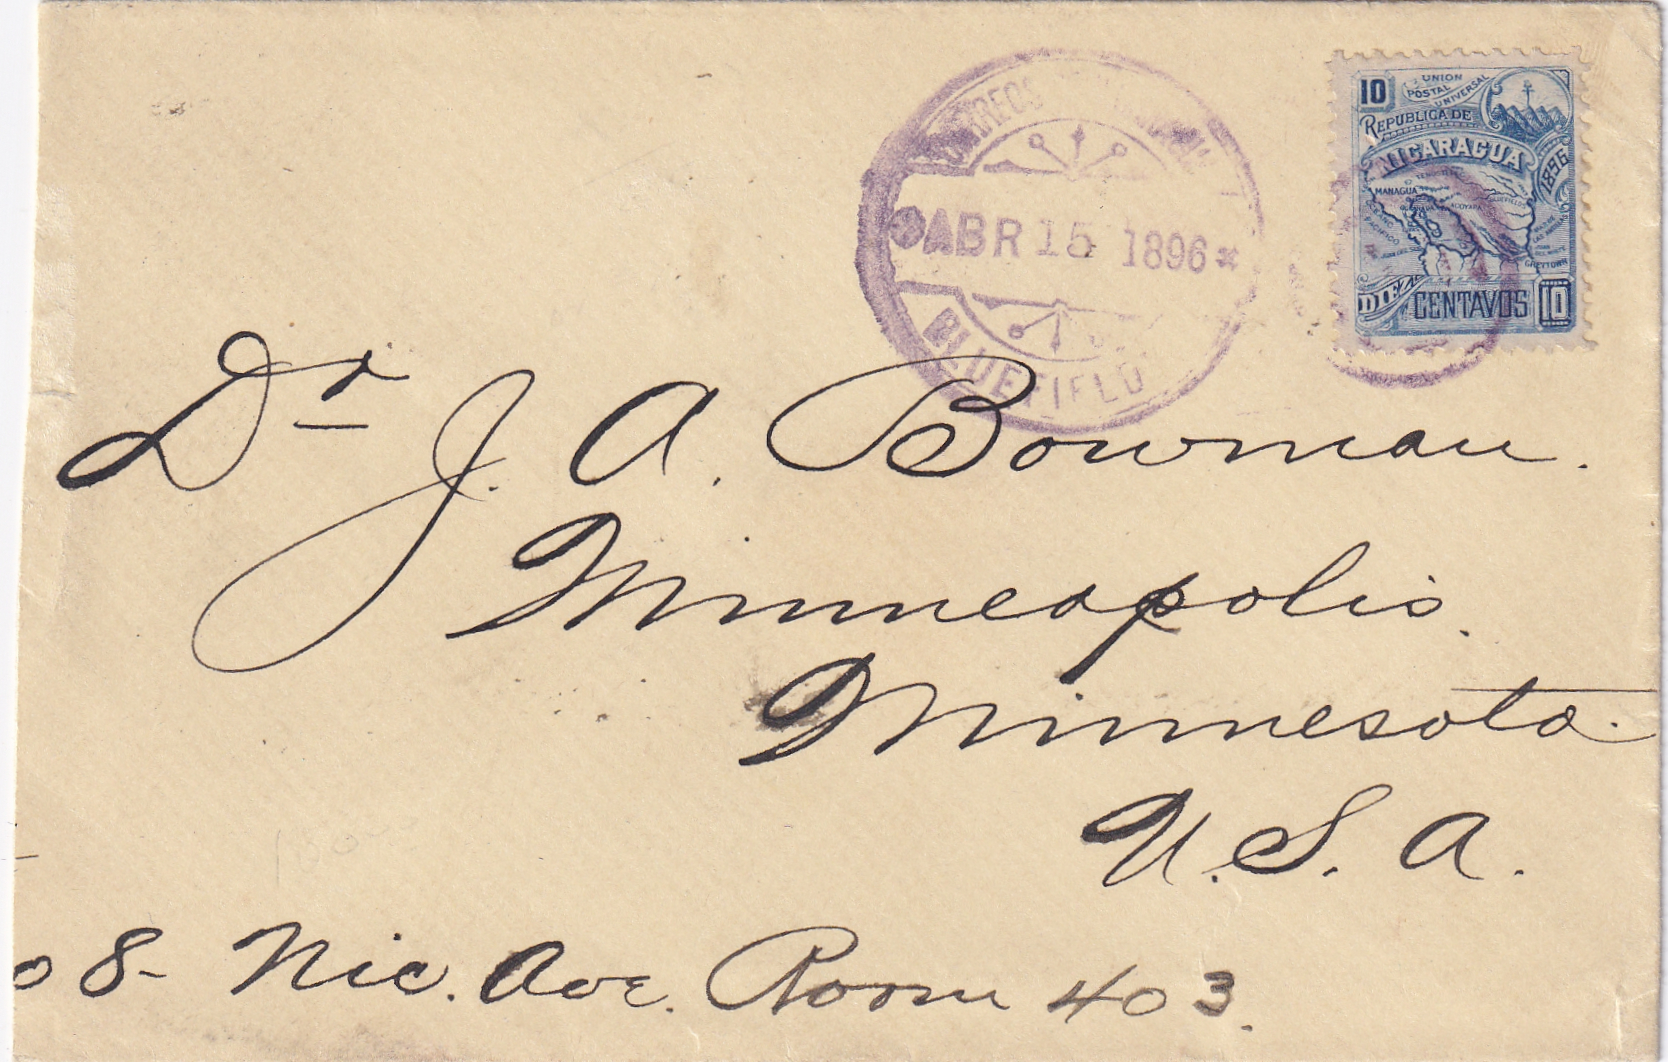 CORREOS
ABR 15 1896
BLUEFIELD
10
UNION
POSTAL
UNIVERSAL
REPUBLICA DE
NICARAGUA
1896
MANAGUA
OCEANO
PACIFICO
GREYTOWN
DIEZ
CENTAVOS 10
Dr J. A. Bowman.
Minneapolis.
Minnesota.
U. S. A.
08- Nic. Ave. Room 403.